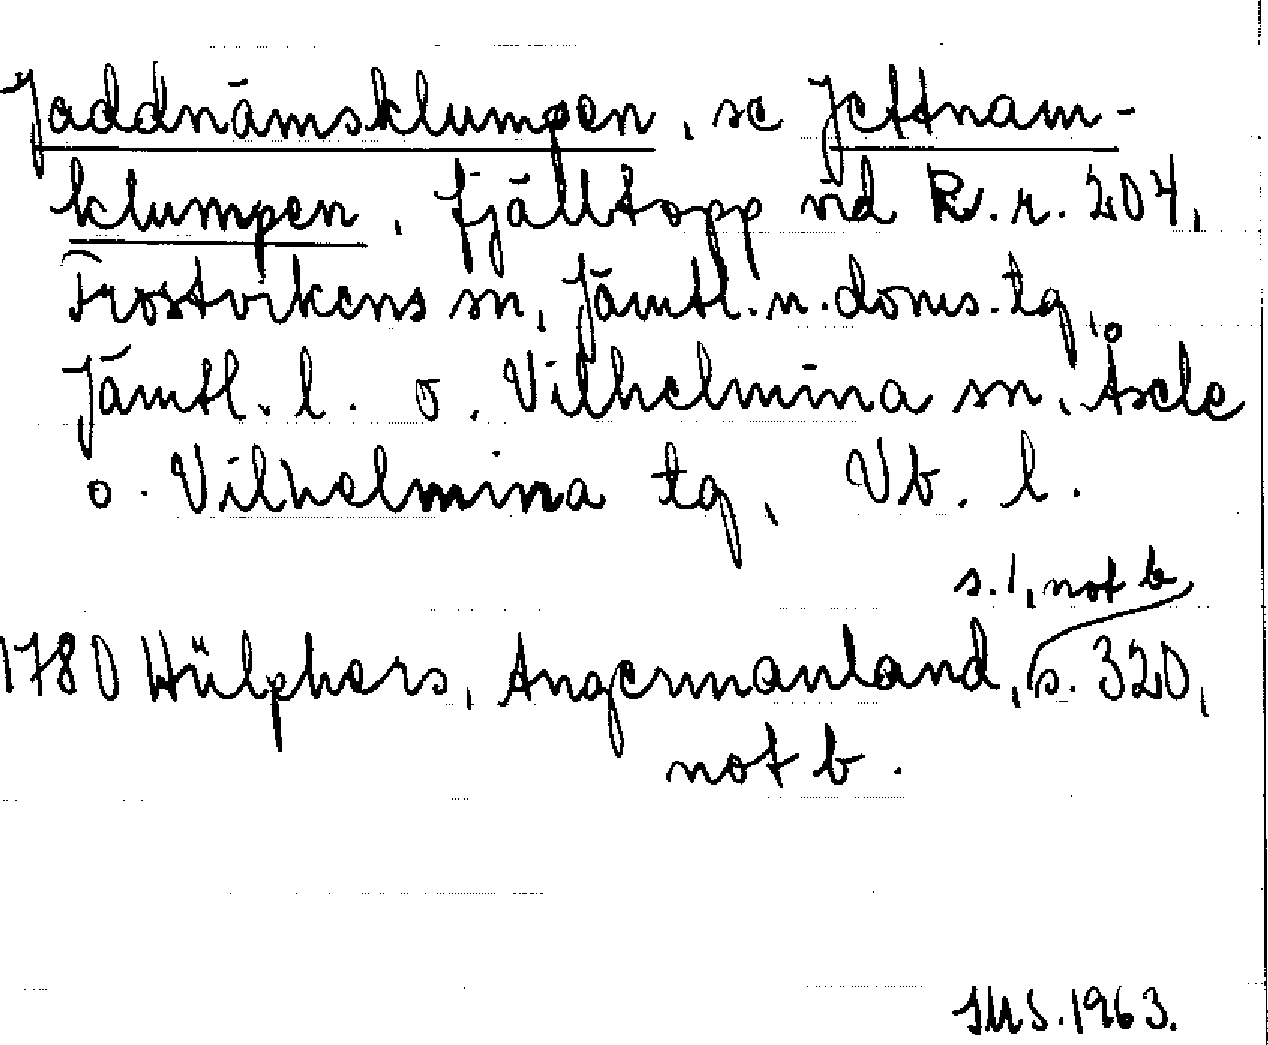 Jaddnämsklumpen, se Jettnam-
klumpen, fjälltopp vid R.r. 204,
Frostvikens sn, Jämtl. n. doms. tg,
Jämtl. l. o. Vilhelmina sn, Åsele
o. Vilhelmina tg, Vb. l.
s. 1, not b
1780 Hülphers, Angermanland, s. 320,
not b.
JMS. 1963.